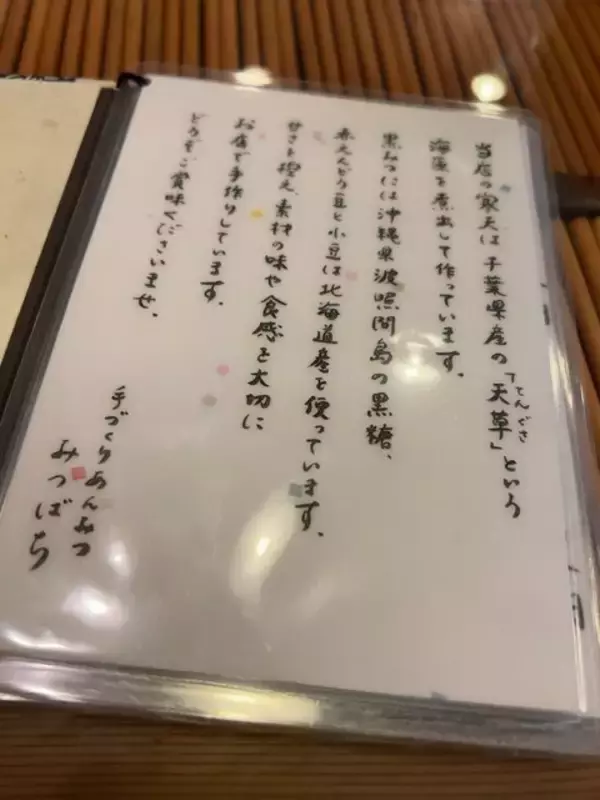 当店の寒天は千葉県産の「天草」という
てんぐさ
海藻を煮出して作っています。
黒みつには沖縄県波照間島の黒糖、
赤えんどう豆と小豆は北海道産を使っています。
甘さを控え、素材の味や食感を大切に
お店で手作りしています。
どうぞご賞味くださいませ、
手づくりあんみつ
みつばち